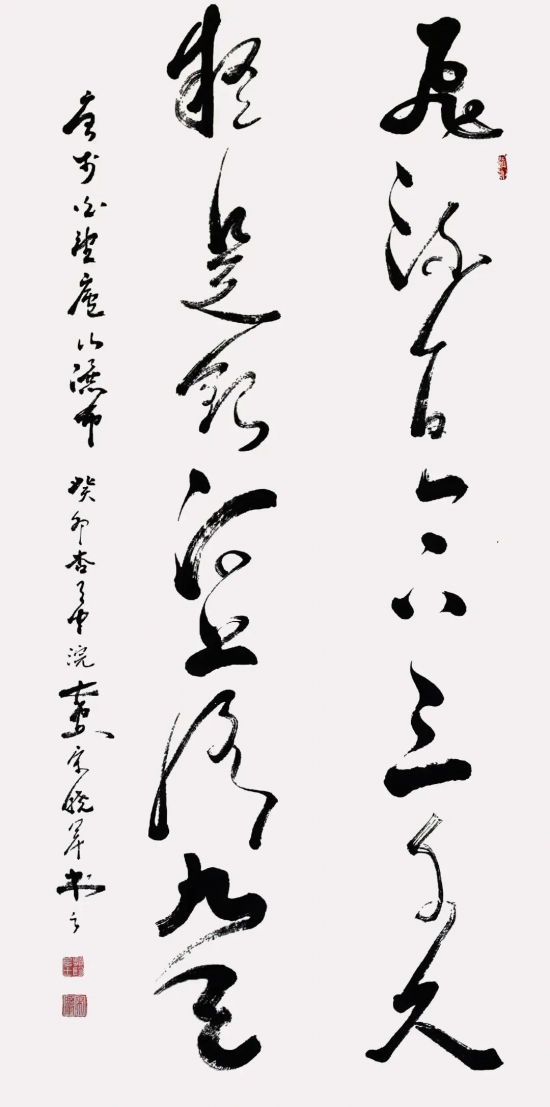 飛流直下三千尺
疑是銀河落九天
唐李白望廬山瀑布 癸卯杏月中浣 宋曉軍書之